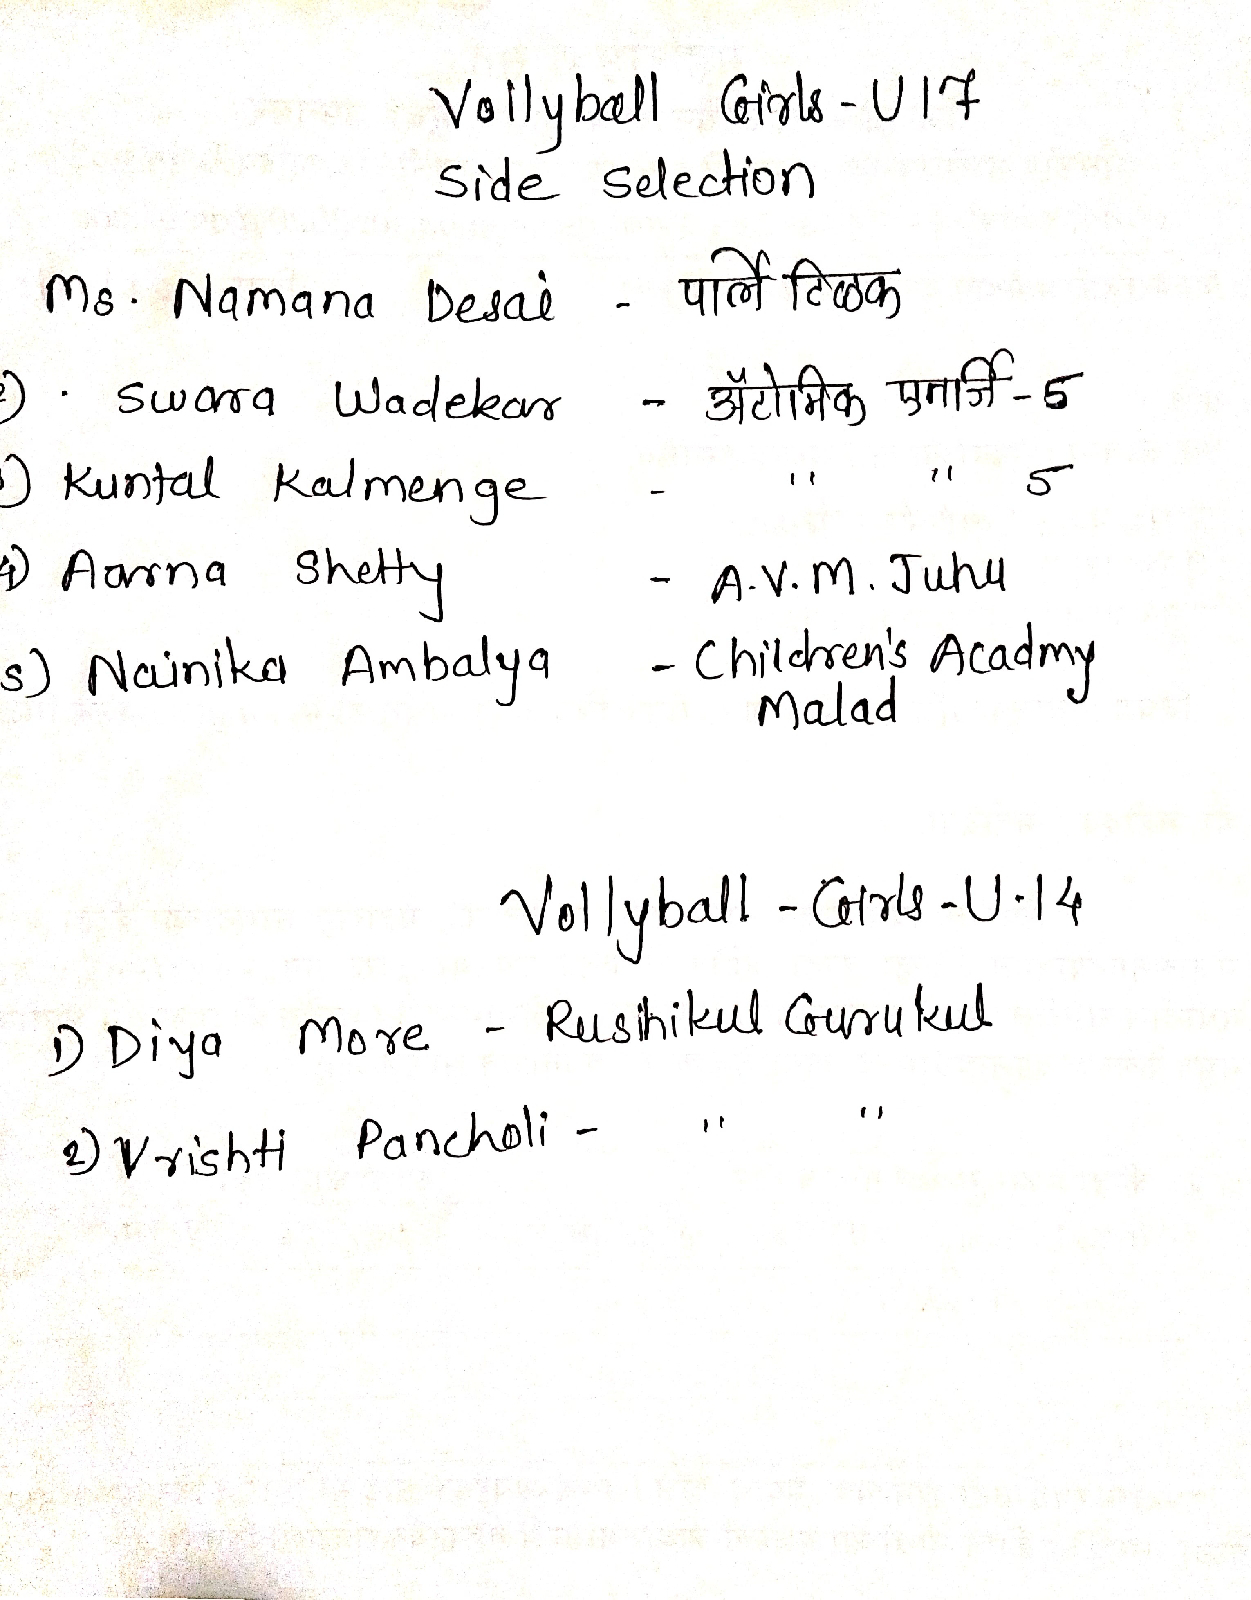 Vollyball Girls - U17
Side Selection
Ms. Namana Desai - पार्ले टिळक
2) . Swara Wadekar - ॲटोमिक एनर्जि - 5
3) Kuntal Kalmenge - " " 5
4) Aarna Shetty - A.V.M. Juhu
5) Nainika Ambalya - Children's Acadmy
Malad
Vollyball - Girls - U-14
1) Diya More - Rushikul Gurukul
2) Vrishti Pancholi - " "